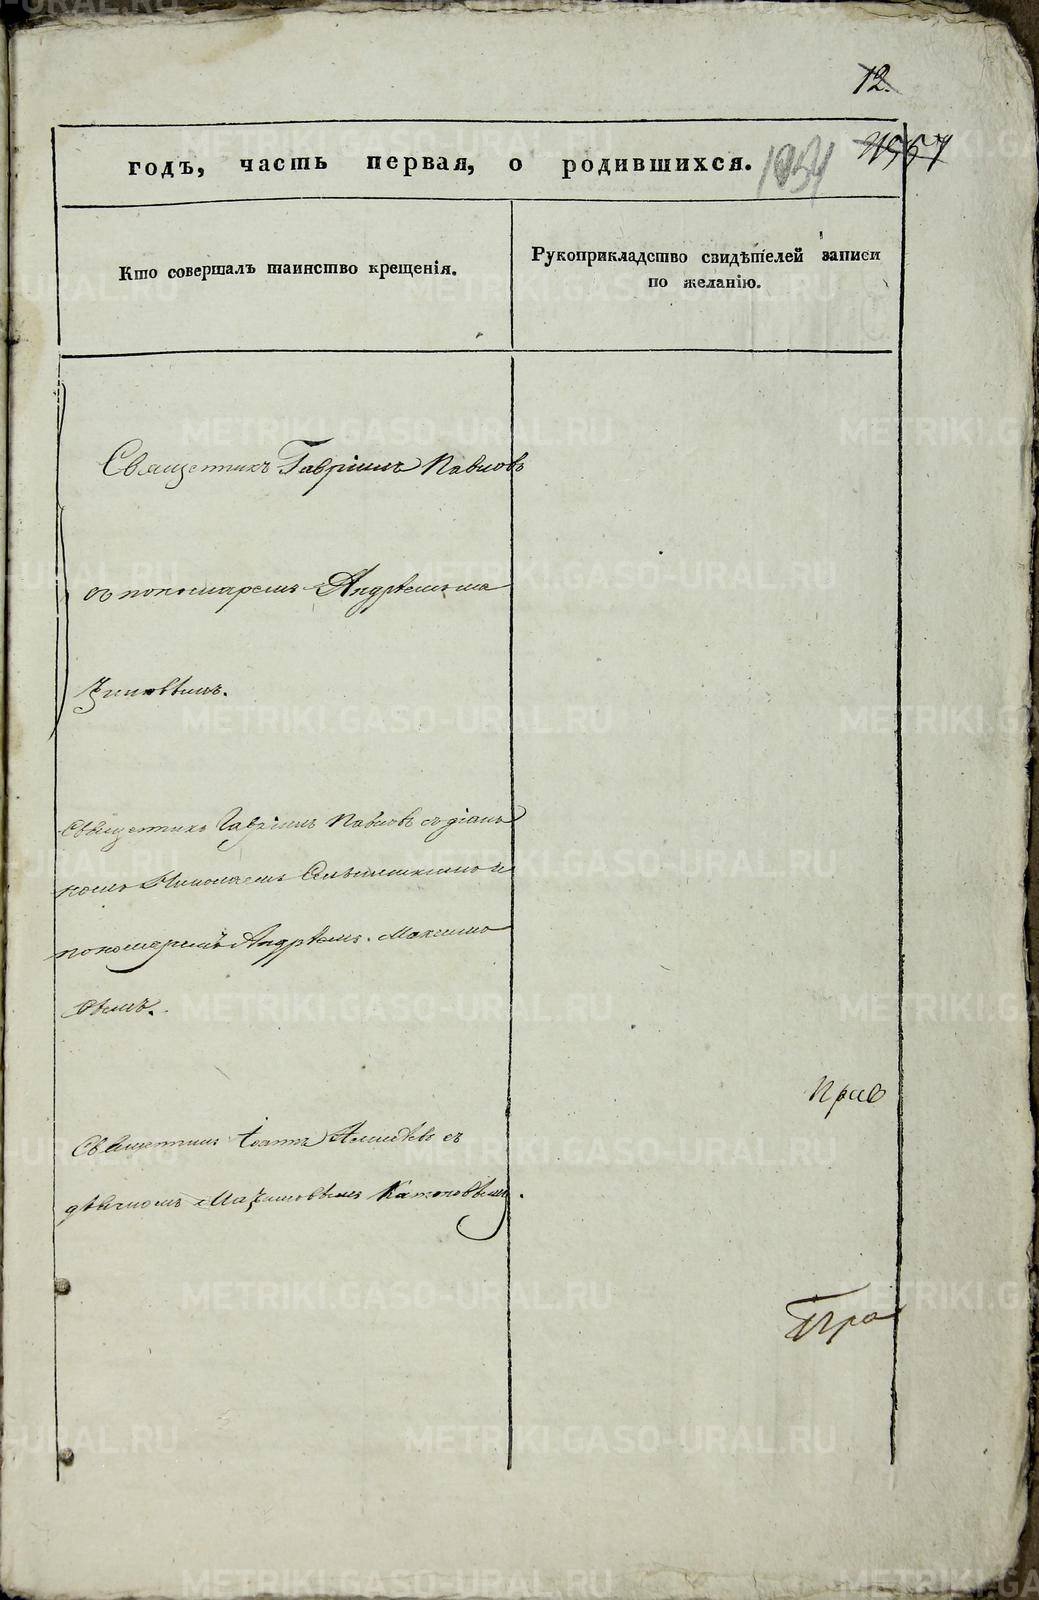 12.
годъ, часть первая, о родившихся. 1054
Кто совершалъ таинство крещенія.
Рукоприкладство свидѣтелей записи
по желанію.
Священникъ Гавріилъ Павловъ
съ пономаремъ Андреемъ
Священникъ Гавріилъ Павловъ съ діако
номъ Николаемъ
пономаремъ Андреемъ Максимо
вымъ.
Прав
Священникъ Іоаннъ съ
дьячкомъ
Пра
METRIKI.GASO-URAL.RU